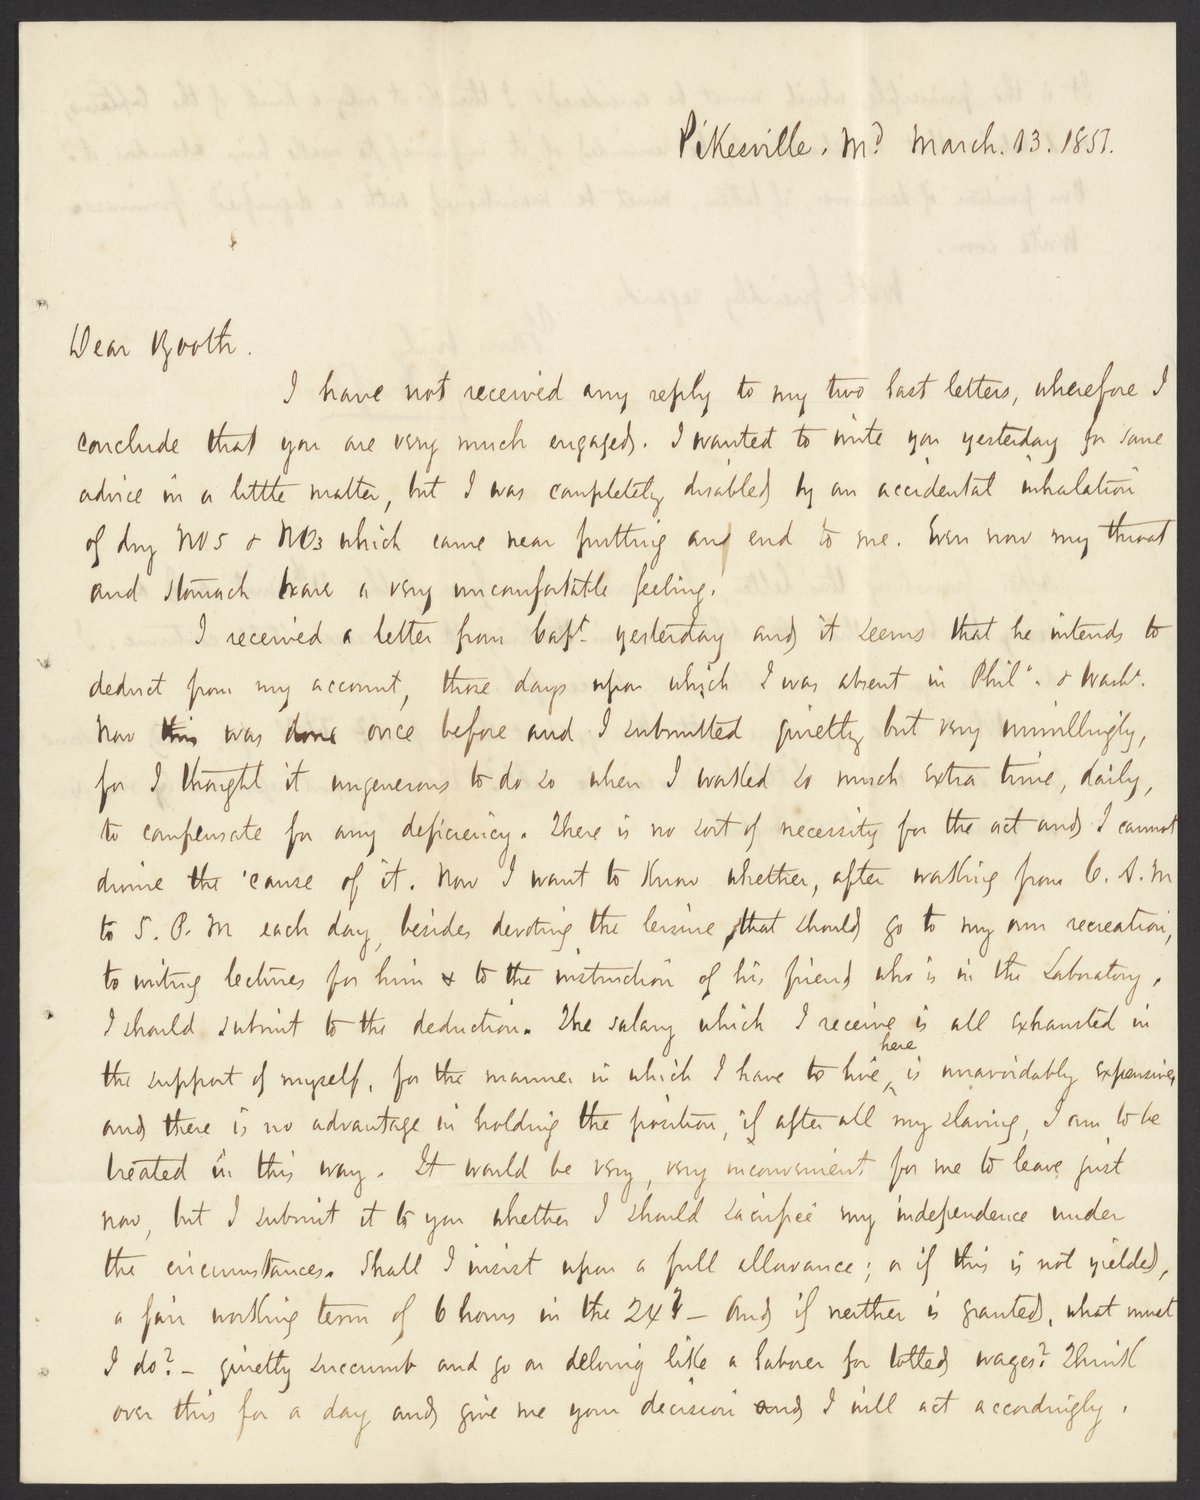 Pikesville. Md March. 13. 1851.
Dear Booth.
I have not received any reply to my two last letters, wherefore I
conclude that you are very much engaged. I wanted to write you yesterday for some
advice in a little matter, but I was completely disabled by an accidental inhalation
of dry NO5 & NO3 which came near putting and end to me. Even now my throat
and stomach have a very uncomfortable feeling.
I received a letter from Capt. yesterday and it seems that he intends to
deduct from my account, those days upon which I was absent in Phila. & Washn.
Now this was done once before and I submitted quietly but very unwillingly,
for I thought it ungenerous to do so when I worked so much extra time, daily,
to compensate for any deficiency. There is no sort of necessity for the act and I cannot
divine the cause of it. Now I want to know whether, after working from 6. A. M
to 5. P. M each day, besides devoting the leisure that should go to my own recreation,
to writing lectures for him & to the instruction of his friend who is in the Laboratory,
I should submit to the deduction. The salary which I receive is all exhausted in
the support of myself, for the manner in which I have to live here is unavoidably expensive,
and there is no advantage in holding the position, if after all my slaving, I am to be
treated in this way. It would be very, very inconvenient for me to leave just
now, but I submit it to you whether I should sacrifice my independence under
the circumstances. Shall I insist upon a full allowance; or if this is not yielded,
a fair working term of 6 hours in the 24? — And if neither is granted, what must
I do? — quietly succumb and go on delving like a laborer for wages? Think
over this for a day and give me your decision and I will act accordingly.